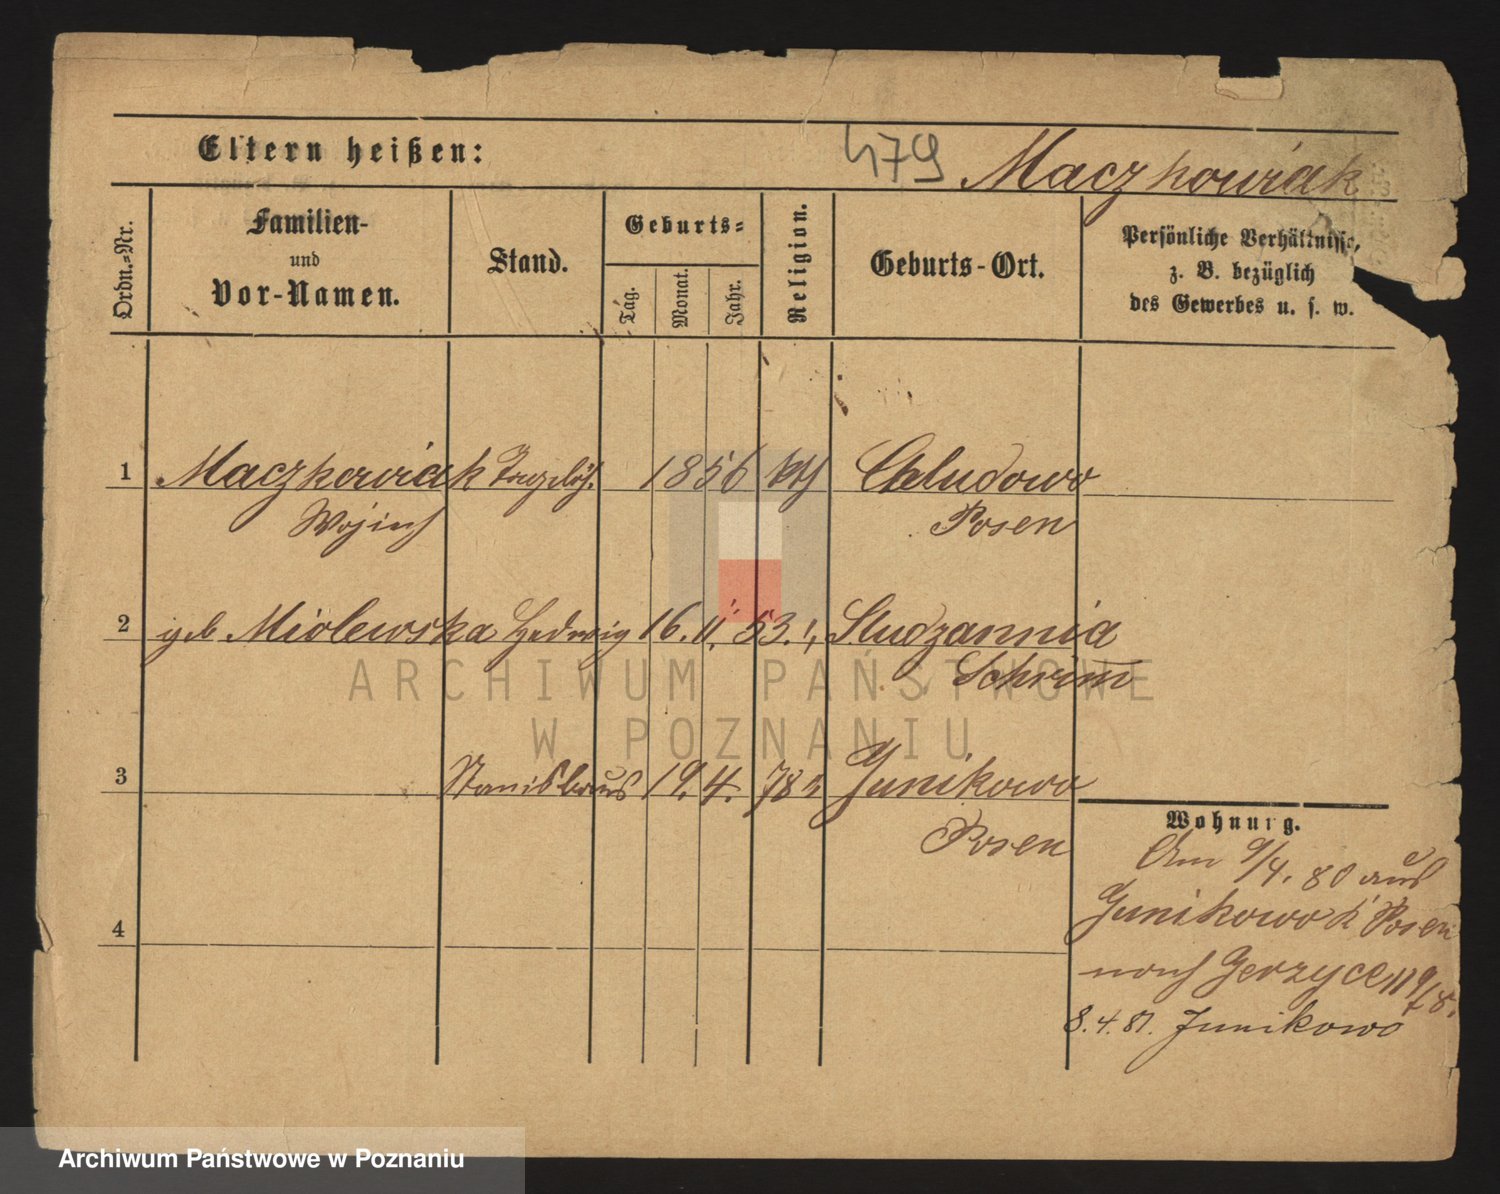 Eltern heißen:
479
Maczkowiak
Ordn.-Nr.
Familien-
und
Vor-Namen.
Stand.
Geburts-
Tag.
Monat.
Jahr.
Religion.
Geburts-Ort.
Persönliche Verhältnisse,
z. B. bezüglich
des Gewerbes u. s. w.
1 Maczkowiak Tagelöh. 1856 kth Chludowo
Wojiech Posen
2 geb. Miolewska Hedwig 16. 11. 53. " Studzannia
Schrim
3 Stanislaus 19. 4. 78 " Junikowo
Posen
4
Wohnung.
Am 9/4. 80 aus
Junikowo k Posen
nach Jerzyce 119/78.
8.4.81. Junikowo
ARCHIWUM PAŃSTWOWE
W POZNANIU
Archiwum Państwowe w Poznaniu